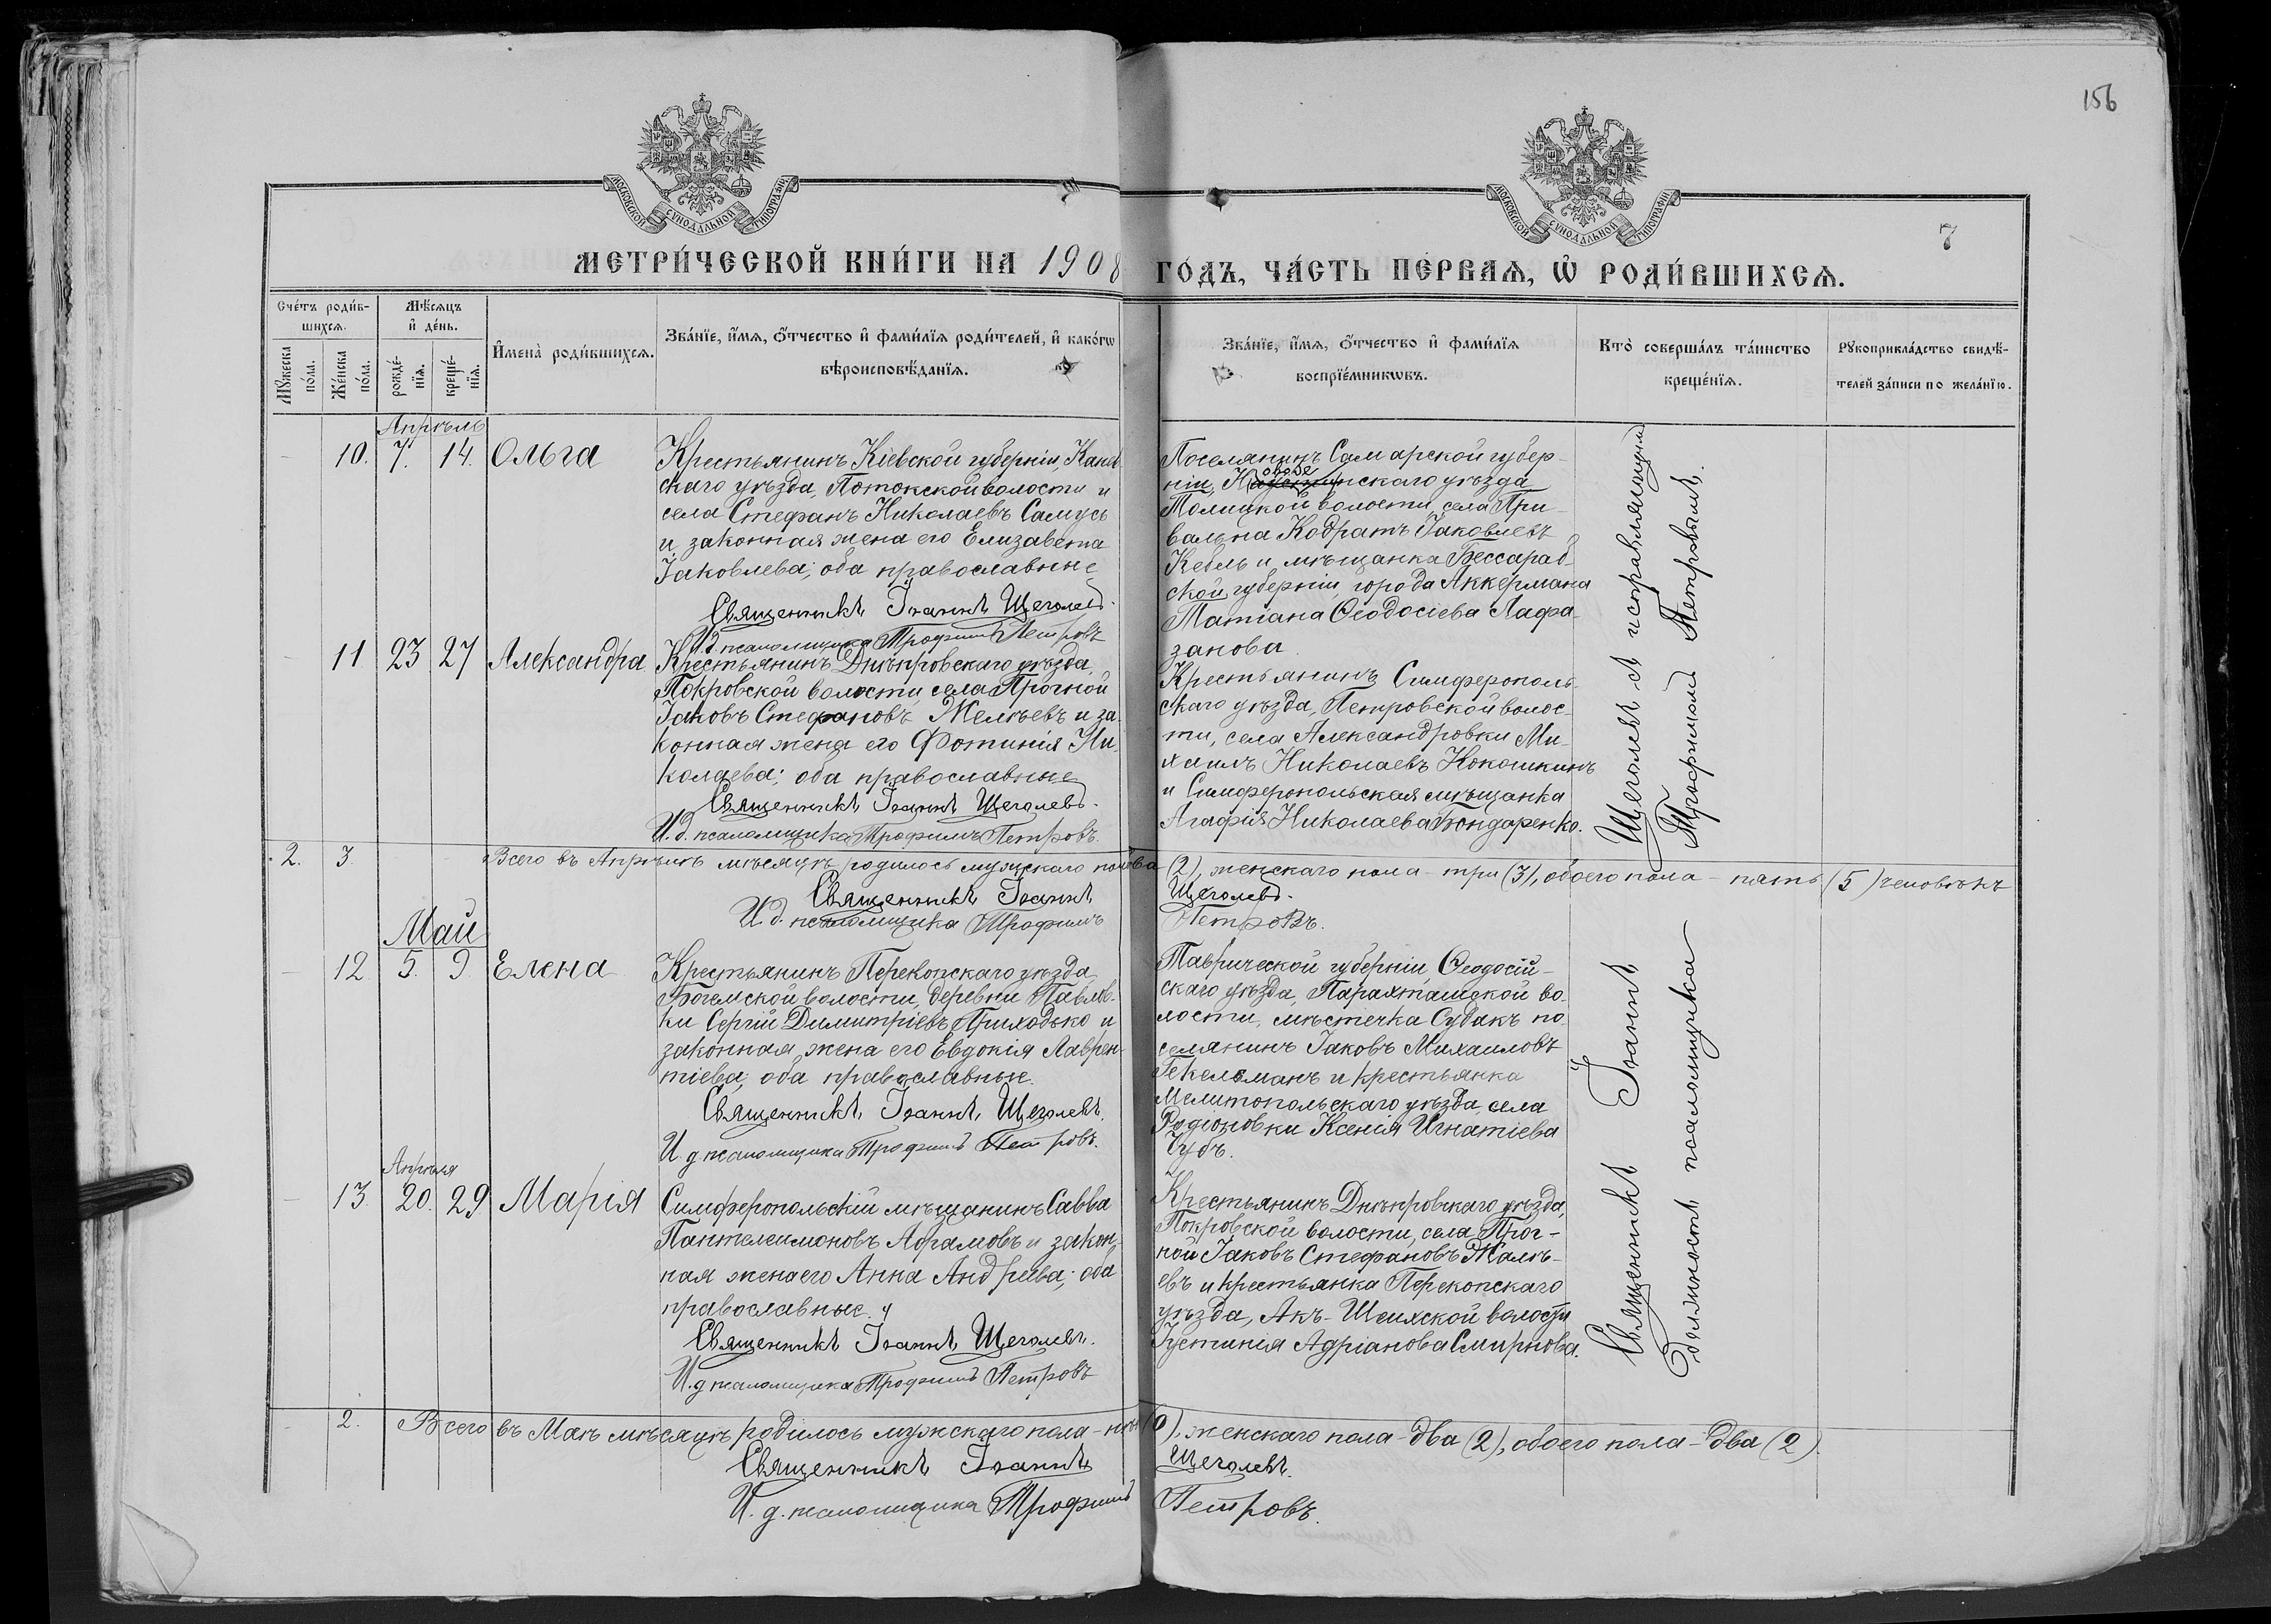 156
МОСКОВСКОЙ СѴНОДАЛЬНОЙ ТИПОГРАФІИ.
МОСКОВСКОЙ СѴНОДАЛЬНОЙ ТИПОГРАФІИ.
7
МЕТРИ́ЧЕСКОЙ КНИ́ГИ НА 1908
ГОДЪ, ЧА́СТЬ ПЕ́РВАѦ, Ѽ РОДИ́ВШИХСѦ.
Сче́тъ роди́в-
шихсѧ.
Мѣ́сѧцъ
и҆ де́нь.
Мꙋжеска
по́ла.
Же́нска
по́ла.
рожде́-
нїѧ.
креще́-
нїѧ.
И҆мена̀ роди́вшихсѧ.
Зва́нїе, и҆́мѧ, ѻ҆́тчество и҆ фами́лїѧ роди́телей, и҆ како́гѡ
вѣроисповѣ́данїѧ.
Зва́нїе, и҆́мѧ, ѻ҆́тчество и҆ фами́лїѧ
воспрїе́мникѡвъ.
Кто̀ соверша́лъ та́инство
креще́нїѧ.
Рꙋкоприкла́дство свидѣ́-
телей за́писи по жела́нїю.
Апрѣль
10. 7. 14. Ольга
Крестьянинъ Кіевской губерніи, Канев
скаго уѣзда, Потокской волости и
села Стефанъ Николаевъ Самусь
и законная жена его Елизавета
Іаковлева; оба православные
Священникъ Іоаннъ Щеголевъ.
И.д. псаломщика Трофимъ Петровъ
Поселянинъ Самарской губер-
ніи, уѣзда
волости, села При-
вальна Кодратъ Іаковлевъ
Кебль и мѣщанка Бессараб-
ской губерніи, города Аккермана
Татіана Ѳеодосіева Лафа-
занова
11 23 27 Александра
Крестьянинъ Днѣпровскаго уѣзда,
Покровской волости, села Прогной
Іаковъ Стефановъ Желѣевъ и за-
конная жена его Фотинія Ни-
колаева; оба православные
Священникъ Іоаннъ Щеголевъ.
И.д. псаломщика Трофимъ Петровъ.
Крестьянинъ Симферополь-
скаго уѣзда, Петровской волос-
ти, села Александровки Ми-
хаилъ Николаевъ Кокошкинъ
и Симферопольская мѣщанка
Агафія Николаева Бондаренко.
2. 3. Всего въ Апрѣлѣ мѣсяцѣ родилось мужскаго пола два (2), женскаго пола – три (3), обоего пола – пять (5) человѣкъ
Священникъ Іоаннъ Щеголевъ.
И.д. псаломщика Трофимъ Петровъ.
Май
12. 5. 9. Елена
Крестьянинъ Перекопскаго уѣзда
Богемской волости, деревни Павлов-
ки Сергій Димитріевъ Приходько и
законная жена его Евдокія Лаврен-
тіева; оба православные.
Священникъ Іоаннъ Щеголевъ.
И.д псаломщика Трофимъ Петровъ.
Таврической губерніи, Ѳеодосій-
скаго уѣзда, Тарахташской во-
лости, мѣстечка Судакъ по-
селянинъ Іаковъ Михаиловъ
Гекельманъ и крестьянка
Мелитопольскаго уѣзда села
Родіоновки Ксенія Игнатіева
Чубъ.
Апрѣля
13. 20. 29 Марія
Симферопольскій мѣщанинъ Савва
Пантелеимоновъ Абрамовъ и закон-
ная жена его Анна Андреева; оба
православные.
Священникъ Іоаннъ Щеголевъ.
И.д псаломщика Трофимъ Петровъ
Крестьянинъ Днѣпровскаго уѣзда,
Покровской волости, села Прог-
ной Іаковъ Стефановъ Жалѣ-
евъ и крестьянка Перекопскаго
уѣзда, Акъ-Шеихской волости
Іустинія Адріанова Смирнова.
Священникъ Іоаннъ Щеголевъ и исправляющій
должность псаломщика Трофимъ Петровъ.
2. Всего въ Маѣ мѣсяцѣ родилось мужскаго пола – (0), женскаго пола – два (2), обоего пола – два (2).
Священникъ Іоаннъ Щеголевъ.
И. д. псаломщика Трофимъ Петровъ.